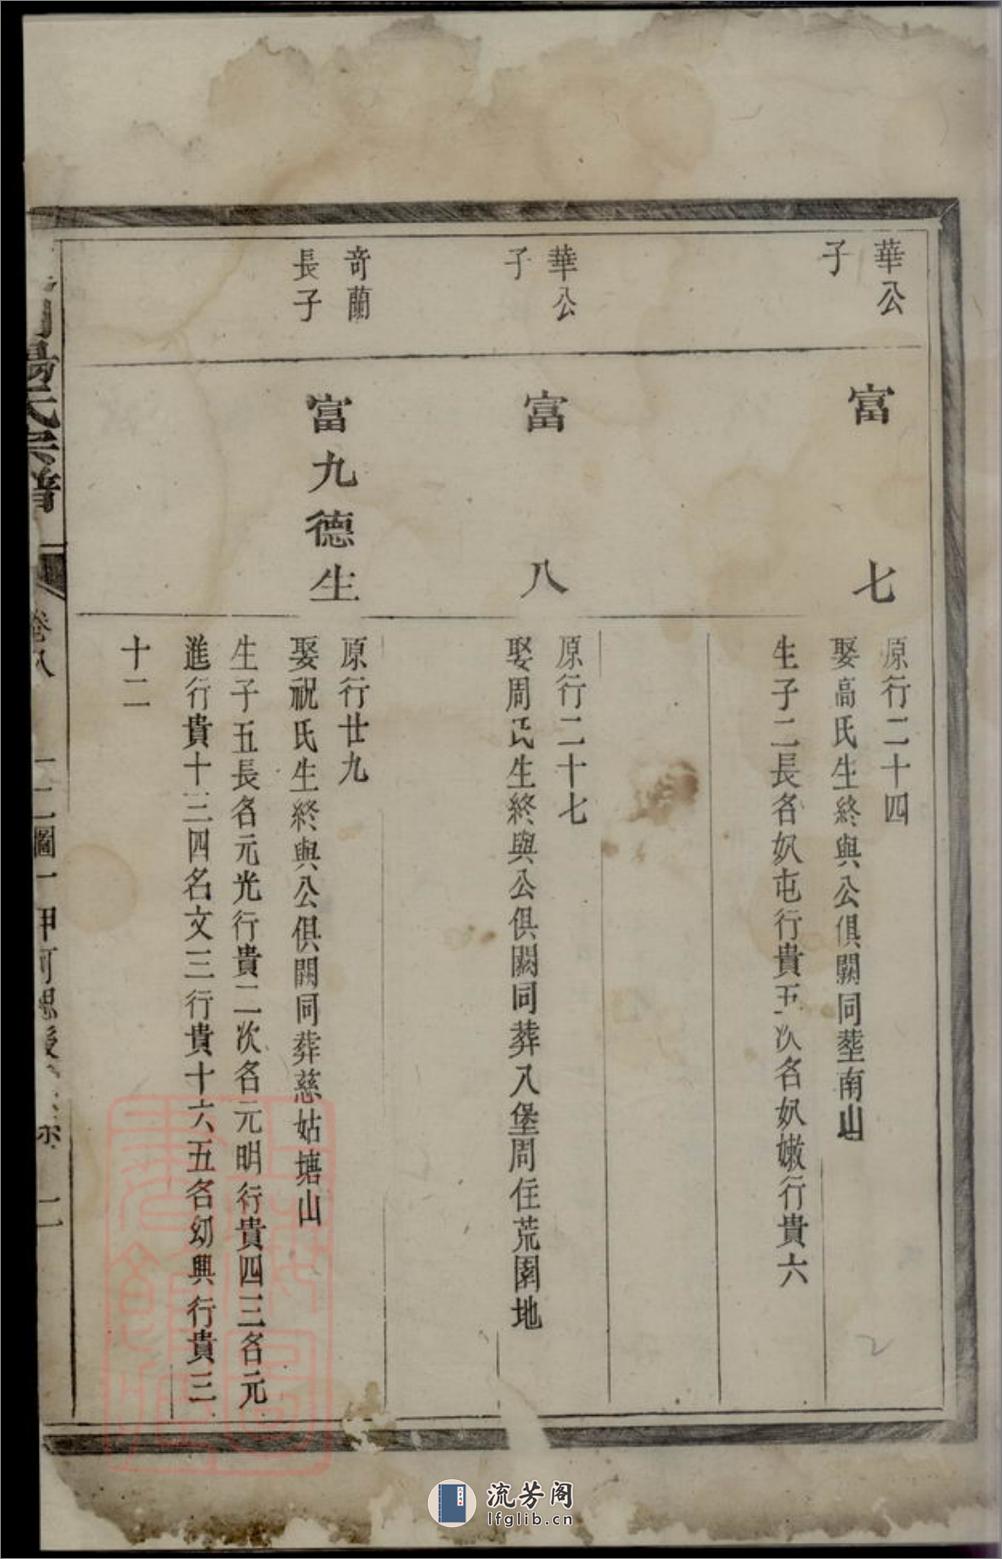 華公
子
富七
原行二十四
娶高氏生終與公俱闕同塟南山
生子二長名奴屯行貴五次名奴嫩行貴六
華公
子
富八
原行二十七
娶周氏生終與公俱闕同葬八堡周住荒園地
奇蘭
長子
富九德生
原行廿九
娶祝氏生終與公俱闕同葬慈姑塘山
生子五長名元光行貴二次名元明行貴四三名元
進行貴十三四名文三行貴十六五名幼興行貴三
十二
氏宗譜
卷八
一二圖一甲河
二
流芳阁
lfglib.cn